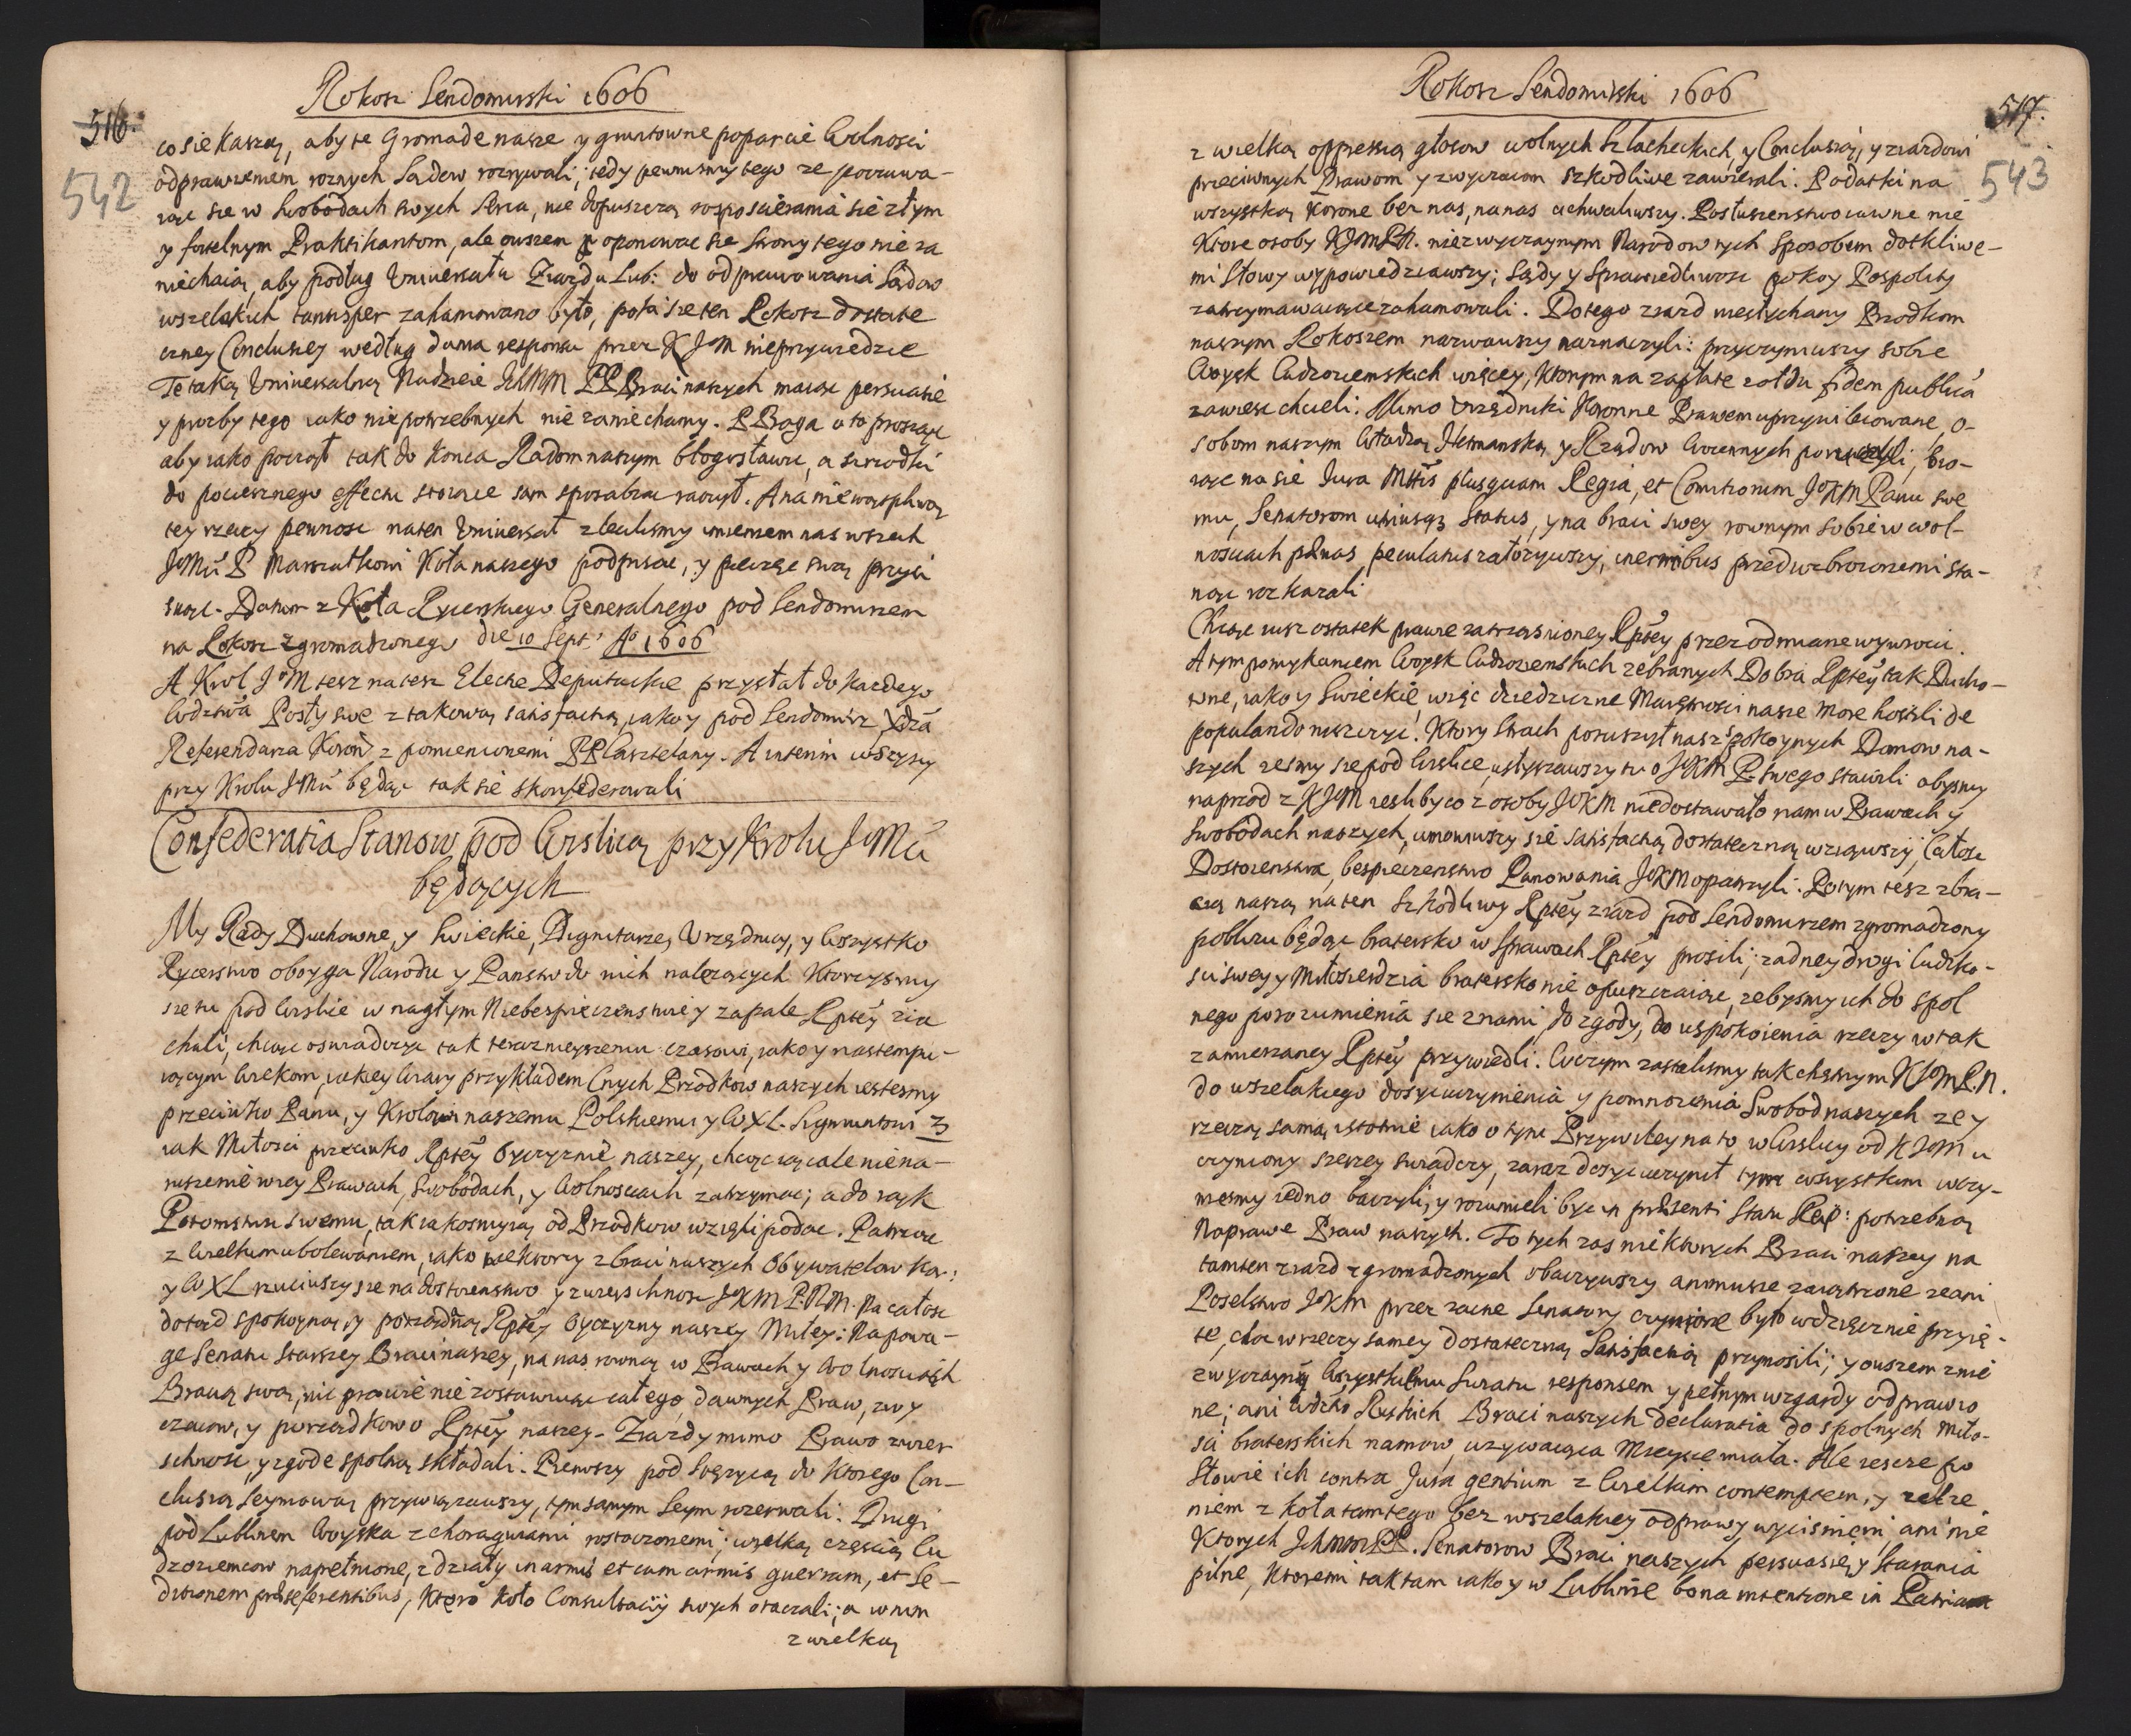 Rokosz Sendomirski 1606
516.
542
co sie kaszą, aby te Gromade nasze y gruntowne poparcie Wolnosci
odprawieniem roznych Sądow rozrywali; tedy pewnismy tego ze poczuwa-
iąc sie w Swobodach swych Serca, nie dopuszczą rosposcierania sie złym
y fortelnym Praktikantom, ale owszem oponowac sie strony tego nie za
niechaią, aby podług Uniwersału Ziazdu Lub: do odprawowania Sądow
wszelakich tantisper zahamowano było, poki sie ten Rokosz dostate
czney Conclusiey według dania responsu przez K JoM nieprzywiedzie
Te taką Uniwersalną Nadzieie JchMM PP Braci naszych maiąc persuasie
y prozby tego iako niepotrzebnych nie zaniechamy. P Boga o to prosząc
aby iako począł tak do konca Radom naszym błogosławił, a srzodki
do pociesznego effectu stoiące sam sposabiac raczył. A na niewątpliwą
tey rzeczy pewnosc na ten Uniwersał zlecilismy imieniem nas wszech
JeMu P Marszałkowi Koła naszego podpisac, y pieczęc swą przyci
snąc. Datum z Koła Rycerskiego Generalnego pod Sendomirzem
na Rokosz zgromadzonego die 10 Sept: Ao 1606
A Krol JoM tesz na tesz Elekcie Deputackie przysłał do kazdego
Wodztwa Posły swe z takową satisfactią, iako y pod Sendomirz, Xdza
Referendarza Koron z pomienionemi PP Casztelany. A interim wszyscy
przy Krolu JeMu będąc tak sie skonfederowali
Confederatia Stanow pod Wislicą przy Krolu JeMu
będących
My Rady Duchowne, y Swieckie, Dignitarze, Urzędnicy, y Wszystko
Rycerstwo oboyga Narodu y Panstw do nich nalezących Ktorzysmy
sie tu pod Wislice w nagłym Niebespieczenstwie y zapale Rptey zia
chali, chcąc oswiadczyc tak teraznieyszemu czasowi, iako y nastempu-
iącym Wiekom, iakiey Wiary przykładem Cnych Przodkow naszych iestesmy
przeciwko Panu, y Krolowi naszemu Polskiemu y WXL. Sigmuntowi 3
iak Miłosci przeciwko Rptey Oyczyznie naszey, chcąc ią cale niena-
ruszenie w iey Prawach, Swobodach, y Wolnosciach zatrzymac; a do rąk
Potomstwu swemu, tak iakosmy ią od Przodkow wzięli podac. Patrząc
z Wielkim ubolewaniem, iako niektorzy z braci naszych Obywatelow Kor:
y WXL rzuciwszy sie na dostoienstwo y zwierzchnosc JoKM P.N.M. Na całosc
dotąd spokoyną, y porządną Rptey Oyczyzny naszey Miłey: Na powa-
ge Senatu Starszey Braci naszey, na nas rowną w Prawach y Wolnosciach
Bracią swą, nic prawie nie zostawuiąc całego, dawnych Praw, zwy
czaiow, y porządkow o Rptey naszey. Ziazdy mimo Prawo zwierz
chnosc, y zgode spolną składali. Pierwszy pod Stęzycą do ktorego Con-
clusią Seymową przywiązawszy, tym samym Seym rozerwali. Drugi
pod Lublinem Woyska z choragwiami roztoczonemi; wielką częscią Cu
dzoziemcow napełnione, z działy in armis et cum armis guerram, et se-
ditionem praeseferentibus, ktoro koło Consultacij swych otaczali; a w nim
z wielką
Rokosz Sendomirski 1606
517.
543
z wielką oppressią głosow wolnych Szlacheckich, y Conclusią, y ziazdowi
przeciwnych Prawom y zwyczaiom szkodliwe zawierali. Podatki na
wszystką Korone bez nas, na nas uchwaliwszy. Posłuszenstwo iawne nie
Ktore osoby KJMPN. niezwyczaynym Narodow tych sposobem dotkliwe-
mi słowy wypowiedziawszy; Sądy y Sprawiedliwosc pokoy Pospolity
zatrzymawaiące zahamowali. Do tego ziazd niesłychany Przodkom
naszym Rokoszem nazwawszy naznaczyli: przyczyniwszy sobie
Woysk Cudzoziemskich więcey, ktorym na zapłate zołdu fidem publica
zawiesc chcieli. Mimo Urzędniki Koronne Prawem uprzywileiowane, o-
sobom naszym Władzą Hetmanską y Rządow Woiennych poruczyli, bio-
rąc na sie Jura Mttis plusquam Regia, et Comitiorum JoKM Panu swe
mu, Senatorom utriusq3 Status, y na braci swey rownym sobie w wol-
nosciach p nas peculatus zatorzywszy, inermibus przed uzbroionemi sta-
nąc rozkazali
Chcąc iusz ostatek prawie zatrząsnioney Rptey przez odmiane wywrocic.
A tym pomykaniem Woysk Cudzoziemskich zebranych Dobra Rptey tak Ducho-
wne, iako y Swieckie, więc dziedziczne Maiętnosci nasze more hostili de
populando niszczyc. Ktory strach poruszył nasz spokoynych Domow na-
szych zesmy sie pod Wislice, usłyszawszy tu o JoKM P. swego stawili abysmy
naprzod z KJoM iesliby co z osoby JoKM niedostawało nam w Prawach y
Swobodach naszych, umowiwszy sie satisfactią dostateczną wziąwszy, Całosc
Dostoienstwa, bespieczenstwo Panowania JoKM opatrzyli. Potym tesz zbra-
cią naszą na ten Szkodliwy Rptey ziazd pod Sendomirzem zgromadzony
poblizu będąc bratersko w sprawach Rptey prosili; zadney drogi ludzko-
sci swey y Miłosierdzia bratersko nie opuszczaiąc, zebysmy ich do spol
nego porozumienia sie z nami, do zgody, do uspokoienia rzeczy w tak
zamieszaney Rptey przywiedli. W czym zastalismy tak chętnym KJoMP.N.
do wszelakiego dosycuczynienia y pomnozenia Swobod naszych ze y
rzeczą samą istotnie iako o tym Przywiley na to w Wislicy od KJoM u
czyniony szerzey swiadczy, zaraz dosyc uczynił tym wszystkim uczy-
niesmy iedno baczyli, y rozumieli byc in praesenti statu Reip: potrzebną
Naprawe Praw naszych. To tych zas niektorych Braci naszey na
tamten ziazd zgromadzonych obaczywszy animusze zaiątrzone ze ani
Poselstwo JoKM przez zacne Senatory czynione było wdzięcznie przyię-
te, choc w rzeczy samey dostateczną Satisfactią przynosili; y owszem z nie
zwyczaynym Wszystkiemu Swiatu responsem y pełnym wzgardy odprawio
ne; ani Wdztw Ruskich Braci naszych declaratia do spolnych miło-
sci braterskich namow, uzywaiąca mieysce miała. Ale iescze po
Słowie ich contra Jura gentium z Wielkim contemptem, y zelze
niem z koła tamtego bez wszelakiey odprawy wycisnieni, ani nie
Ktorych JchMMPP. Senatorow Braci naszych persuasie, y starania
pilne, Ktoremi tak tam iako y w Lublinie bona intentione in Patriam